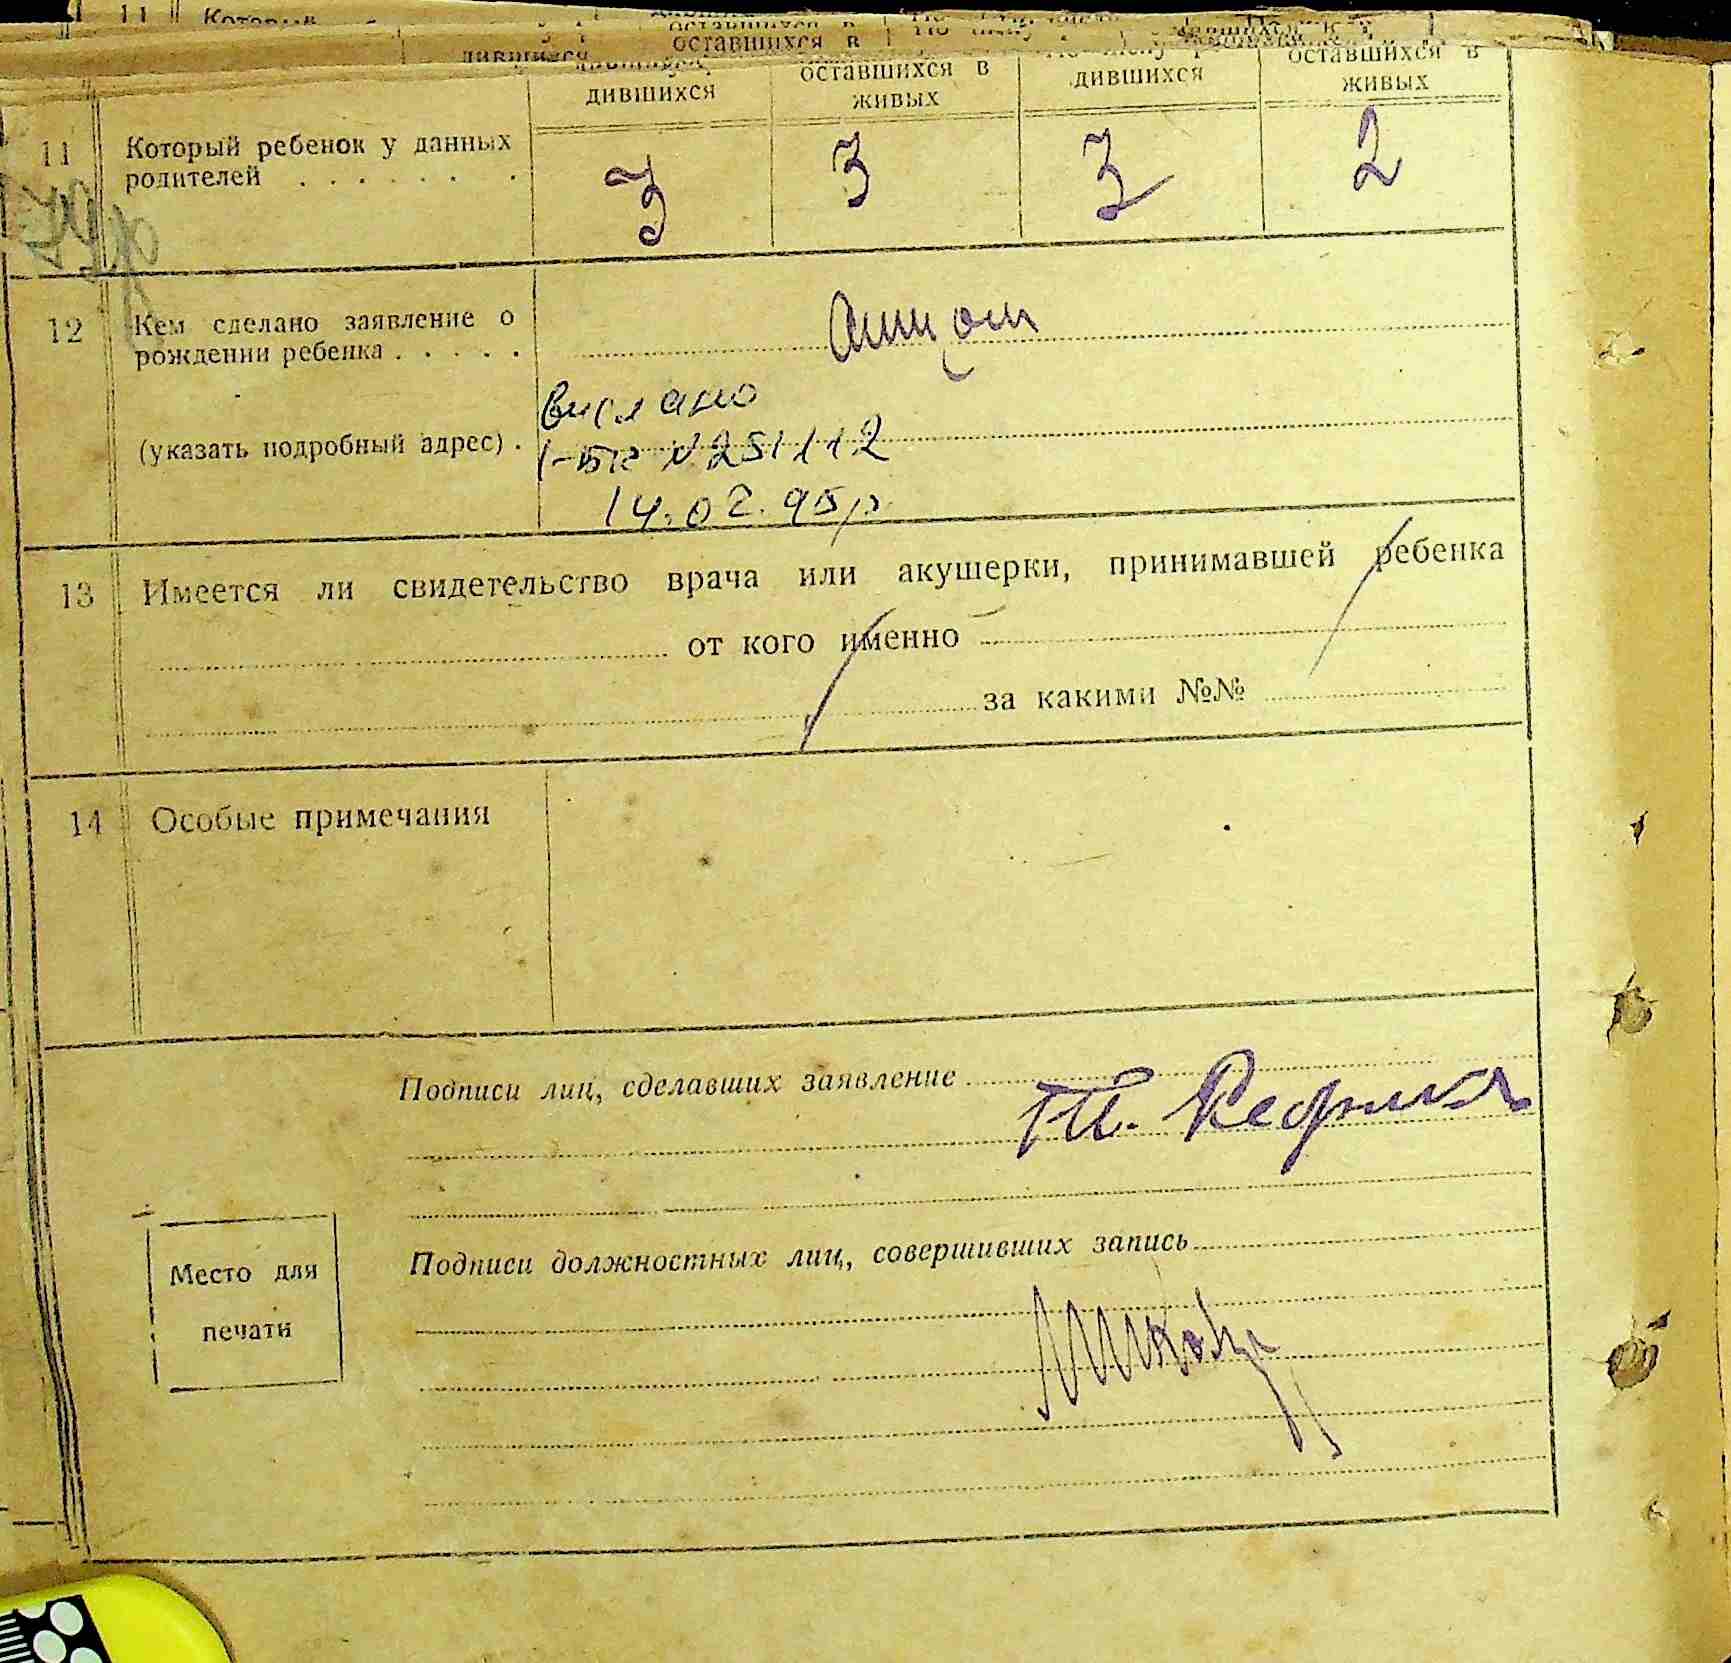 11 Который
дившихся оставшихся в
дившихся оставшихся в живых дившихся оставшихся в живых
11 Который ребенок у данных родителей . . . . . . . 3 3 3 2
12 Кем сделано заявление о
рождении ребенка . . . . .
(указать подробный адрес) .
вислано
І-БК №251112
14.02.95р
13 Имеется ли свидетельство врача или акушерки, принимавшей ребенка
от кого именно
за какими №№
14 Особые примечания
Подписи лиц, сделавших заявление
Подписи должностных лиц, совершивших запись
Место для
печати